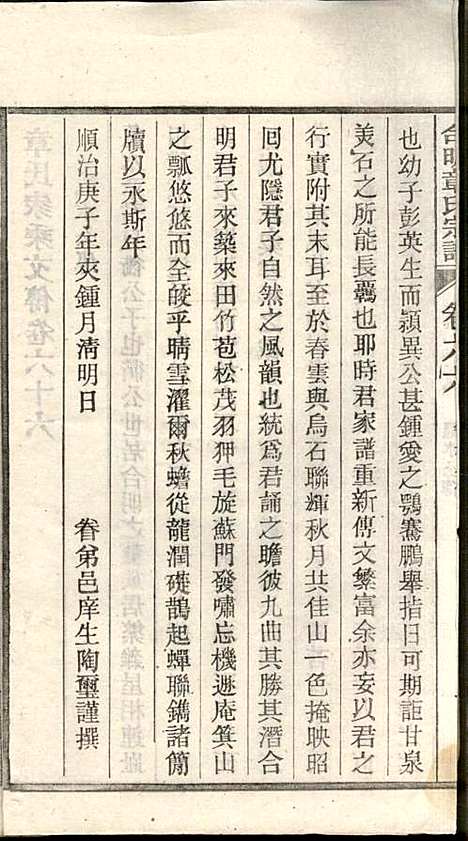 合明章氏宗譜 卷六六
也幼子彭英生而頴異公甚鍾愛之鶚騫鵬舉指日可期詎甘泉
美石之所能長羈也耶時君家譜重新傳文繁富余亦妄以君之
行實附其末耳至於春雲與烏石聯輝秋月共佳山一色掩映昭
回尤隱君子自然之風韻也統爲君誦之瞻彼九曲其勝其潛合
明君子來築來田竹苞松茂羽狎毛旋蘇門發嘯忘機遯庵箕山
之瓢悠悠而全皎乎晴雪濯爾秋蟾從龍潤礎鵲起蟬聯鐫諸簡
牘以永斯年
順治庚子年夾鍾月清明日 眷弟邑庠生陶璽謹撰